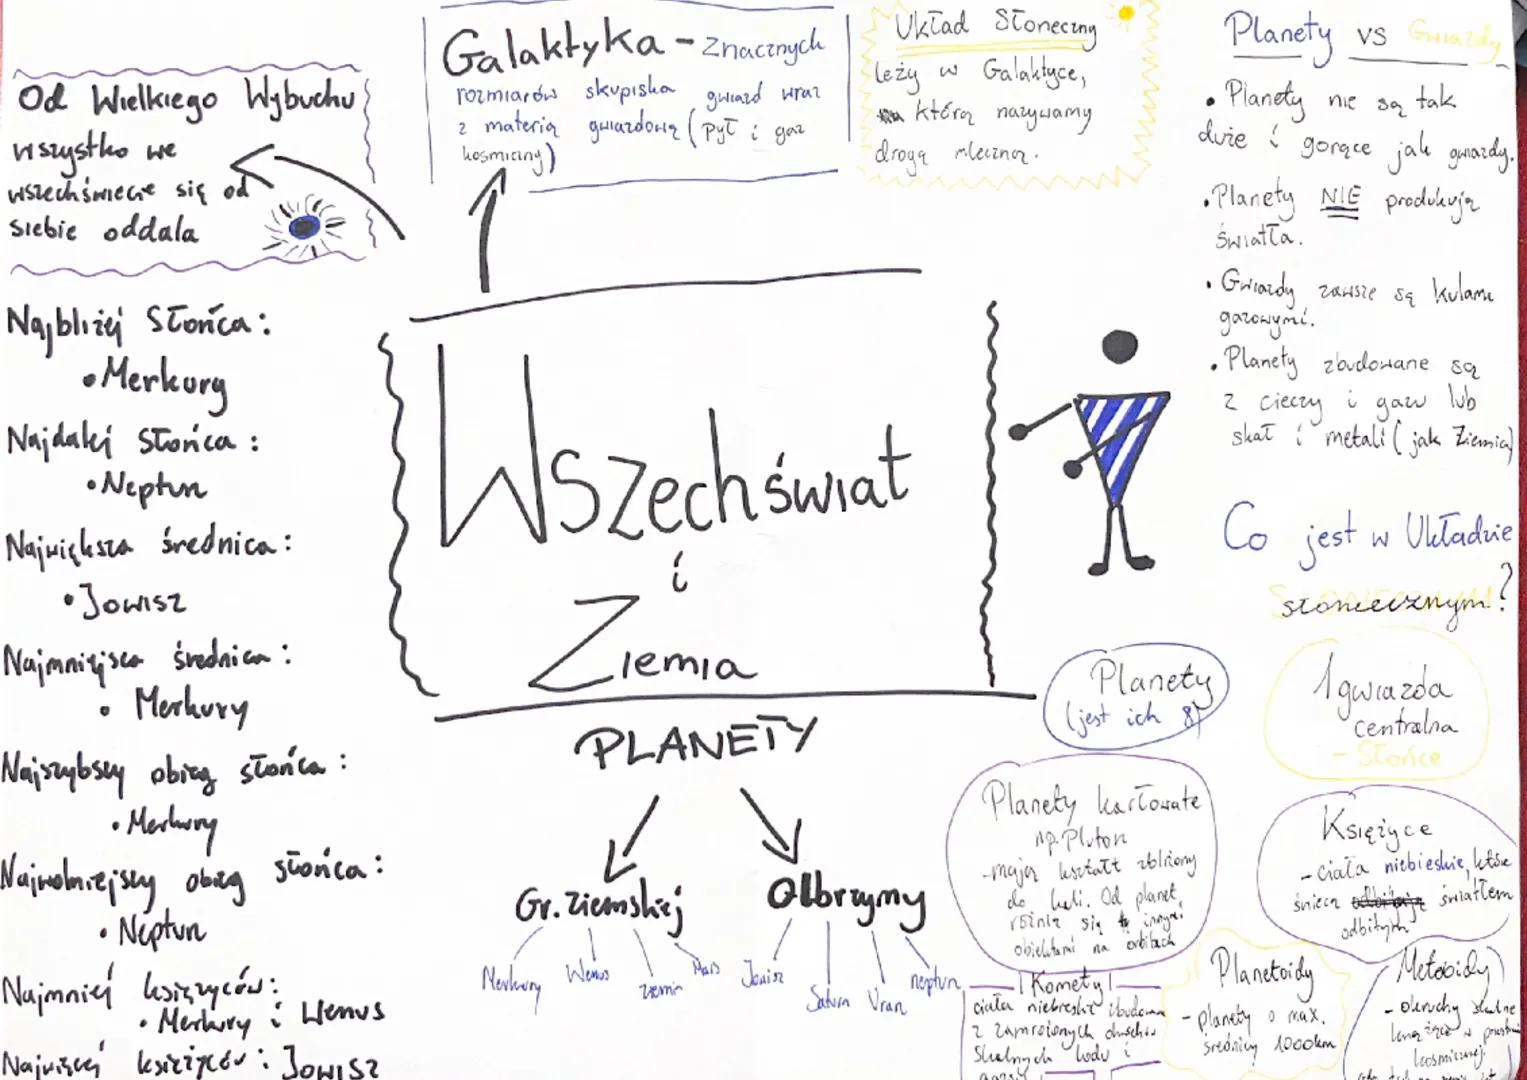 Od Wielkiego Wybuchu
wszystko we
wszechświecie się od
siebie oddala
Galaktyka - znacznych
rozmiarów skupiska gwiazd wraz
z materią gwiazdową (pył i gaz
kosmiczny)
Układ Słoneczny
leży w Galaktyce,
którą nazywamy
drogą mleczną.
Planety vs Gwiazdy
• Planety nie są tak
duże i gorące jak gwiazdy.
• Planety NIE produkują
światła.
• Gwiazdy zawsze są kulami
gazowymi.
• Planety zbudowane są
z cieczy i gazu lub
skał i metali (jak Ziemia)
Najbliżej Słońca:
• Merkury
Najdalej Słońca:
• Neptun
Największa średnica:
• Jowisz
Najmniejsza średnica:
• Merkury
Najszybszy obieg słońca:
• Merkury
Najwolniejszy obieg słońca:
• Neptun
Najmniej księżyców:
• Merkury i Wenus
Najwięcej księżyców: Jowisz
Wszechświat
i
Ziemia
PLANETY
Gr. ziemskiej
Merkury Wenus ziemia Mars
Olbrzymy
Jowisz Saturn Uran neptun
Co jest w Układzie
słonecznym?
Planety
(jest ich 8)
1 gwiazda
centralna
- Słońce
Planety karłowate
np. Pluton
- mają kształt zbliżony
do kuli. Od planet
różnią się innymi
obiektami na orbitach
Księżyce
- ciała niebieskie, które
świecą światłem
odbitym
Komety
ciała niebieskie zbudowane
z zamrożonych
skalnych lodu i
Planetoidy
- planety o max.
średnicy 1000km
Meteoidy
- okruchy skalne
krążące w
kosmicznej